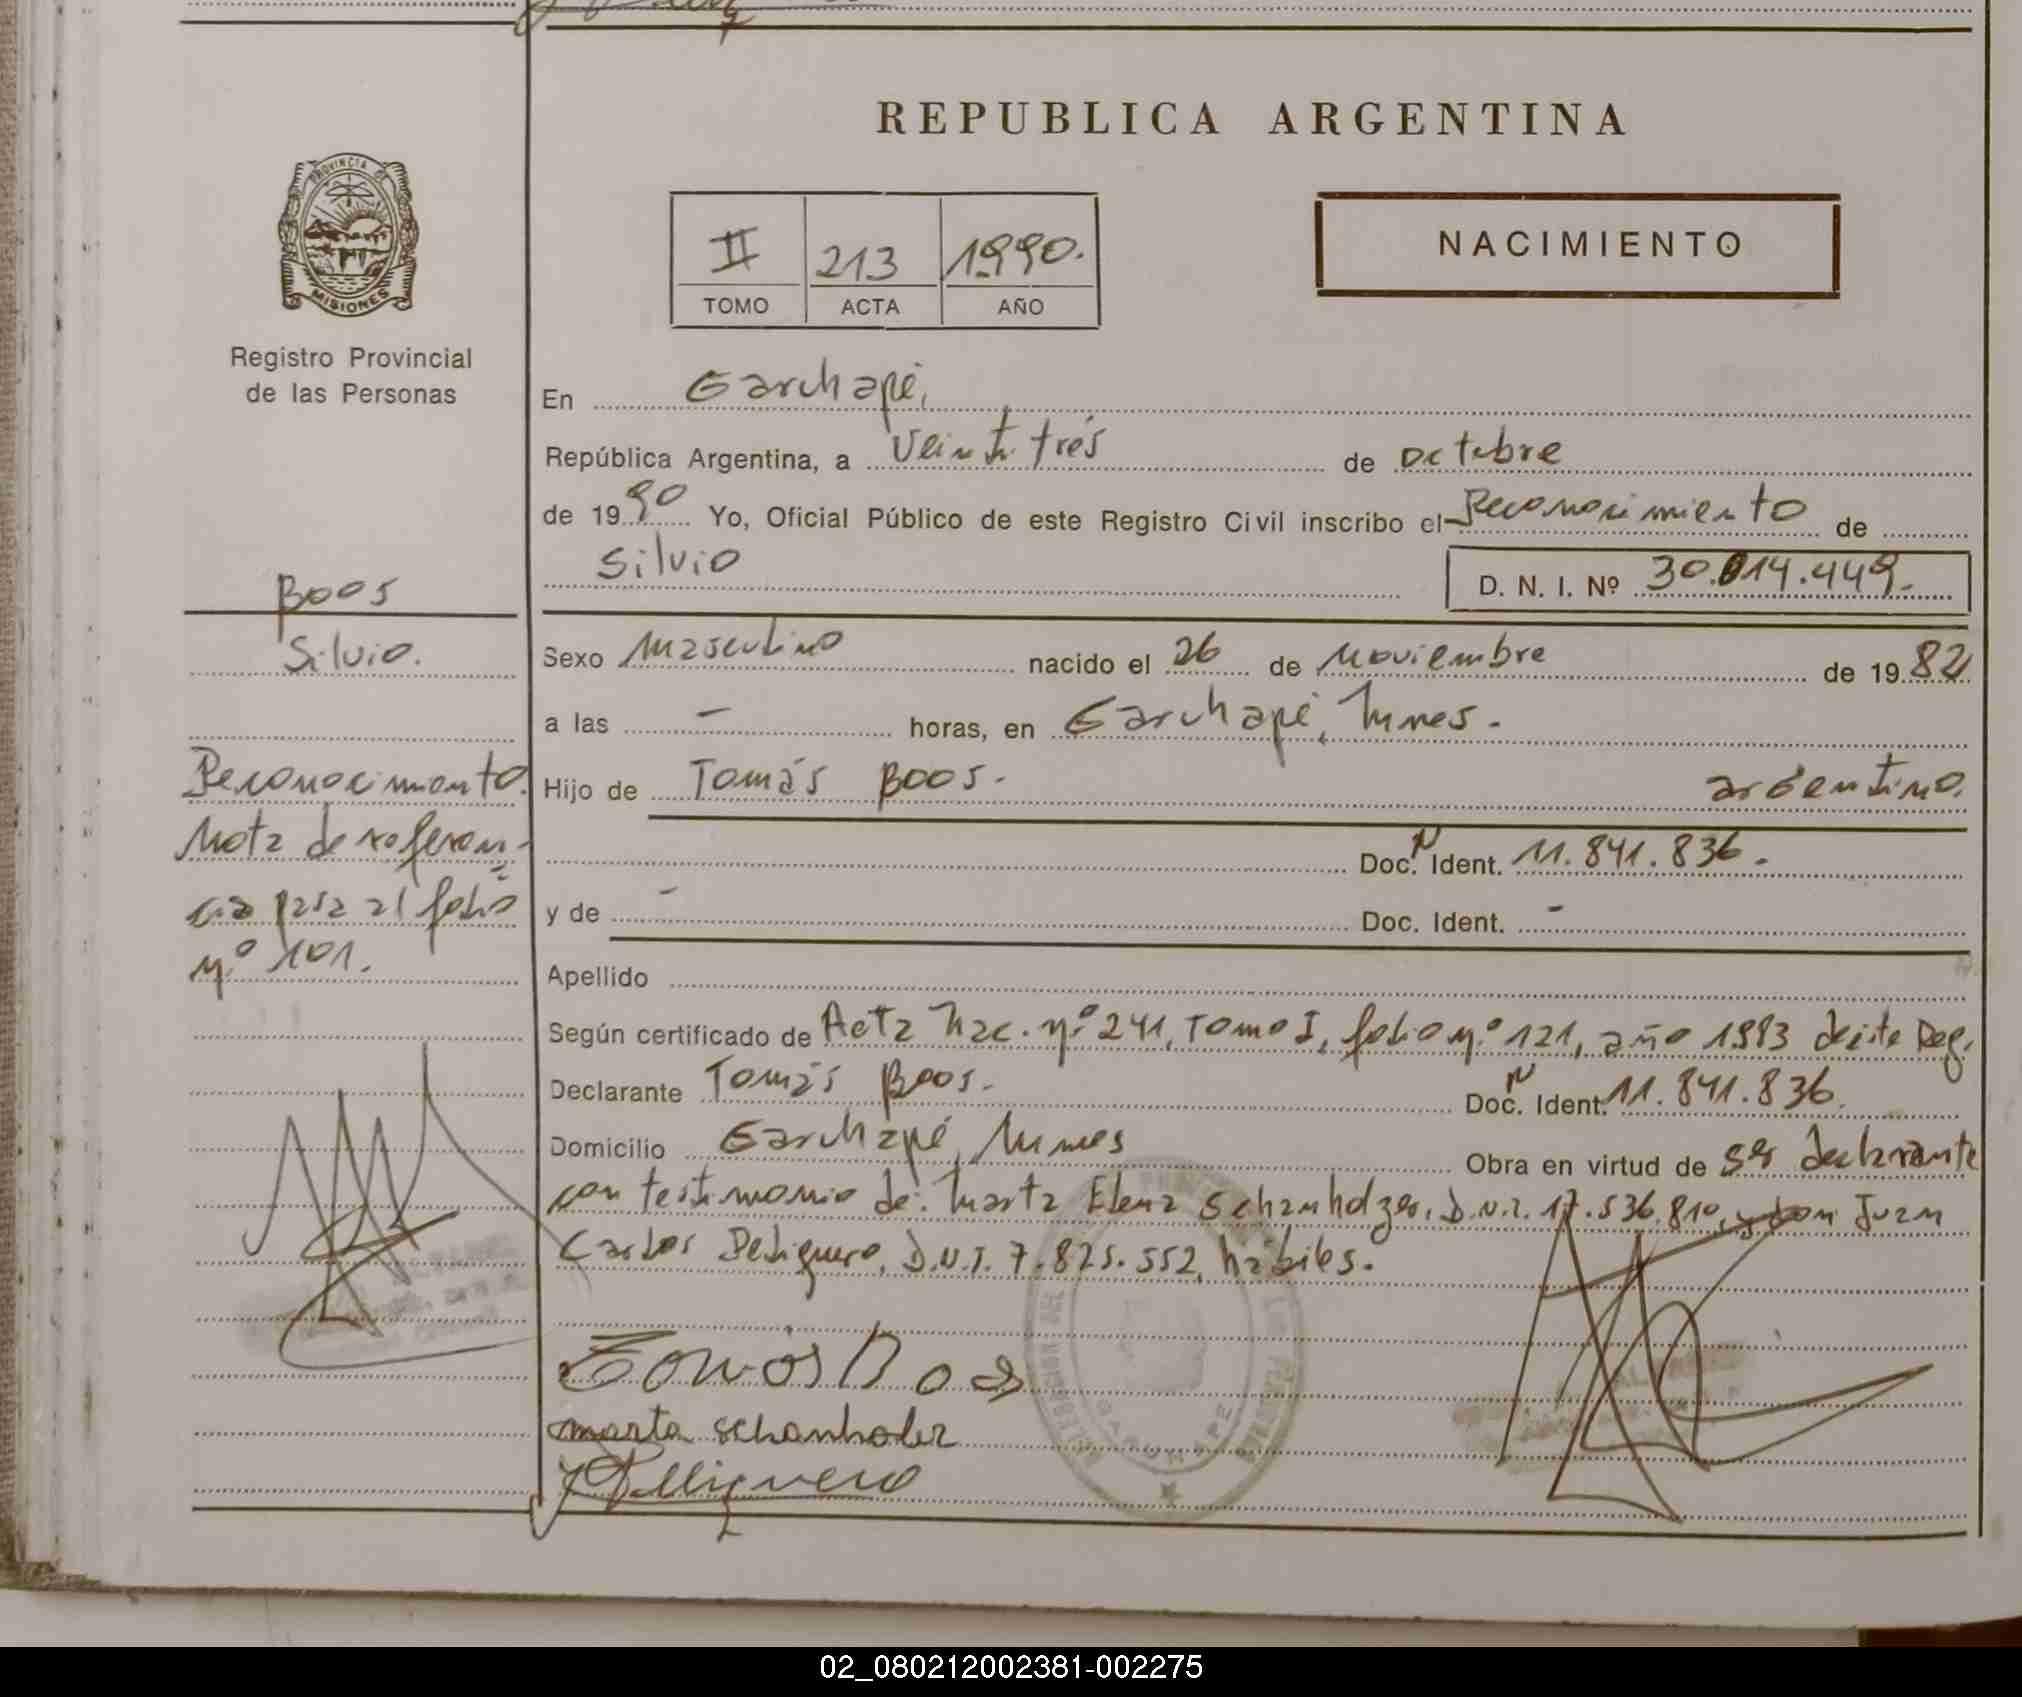 REPUBLICA ARGENTINA
PROVINCIA DE
MISIONES
Registro Provincial
de las Personas
II 213 1990.
TOMO ACTA AÑO
NACIMIENTO
En Garuhapé,
República Argentina, a Veintitrés de octubre
de 1990 Yo, Oficial Público de este Registro Civil inscribo el Reconocimiento de
Silvio
D. N. I. Nº 30.014.449.
Boos
Silvio.
Sexo Masculino nacido el 26 de Noviembre de 1982
a las - horas, en Garuhapé, Mnes.
Hijo de Tomás Boos. argentino.
Doc. N Ident. 11.841.836.
y de - Doc. Ident. -
Apellido
Según certificado de Acta Nac. Nº 241, Tomo I, folio Nº 121, año 1983 de este Reg.
Declarante Tomás Boos. Doc. N Ident. 11.841.836.
Domicilio Garuhapé, Mnes Obra en virtud de ser declarante
con testimonio de: Marta Elena Schanholzer, D.N.I. 17.536.810, y don Juan
Carlos Pelliguero, D.N.I. 7.825.552, hábiles.
Reconocimiento.
Nota de referen-
cia pasa al folio
Nº 101.
Tomás Boos
marta schanholzer
Pelliguero
GARUHAPE
02_080212002381-002275